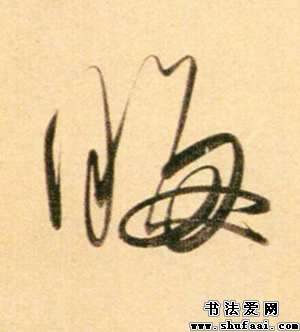 晦
书法爱网
www.shufaai.com